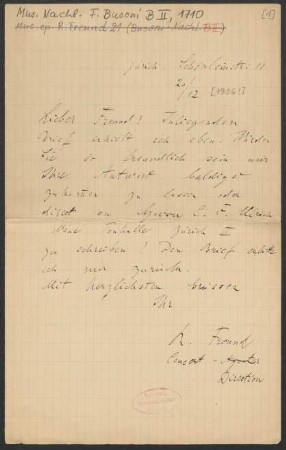 Mus. Nachl. F. Busoni B II, 1710
[1]
Mus. ep. R. Freund 21 (Busoni-Nachl. B II)
Zürich. Schönleinstr. 11
20/12 [1906!]
Lieber Freund! Inliegenden
Brief erhielt ich eben. Würden
Sie so freundlich sein mir
Ihre Antwort baldigst
zukommen zu lassen oder
direct an Herrn C. F. Ulrich
Neue Tonhalle Zürich II
zu schreiben! Den Brief erbitte
ich mir zurück.
Mit herzlichsten Grüssen
Ihr
R. Freund
Concert-
Direction